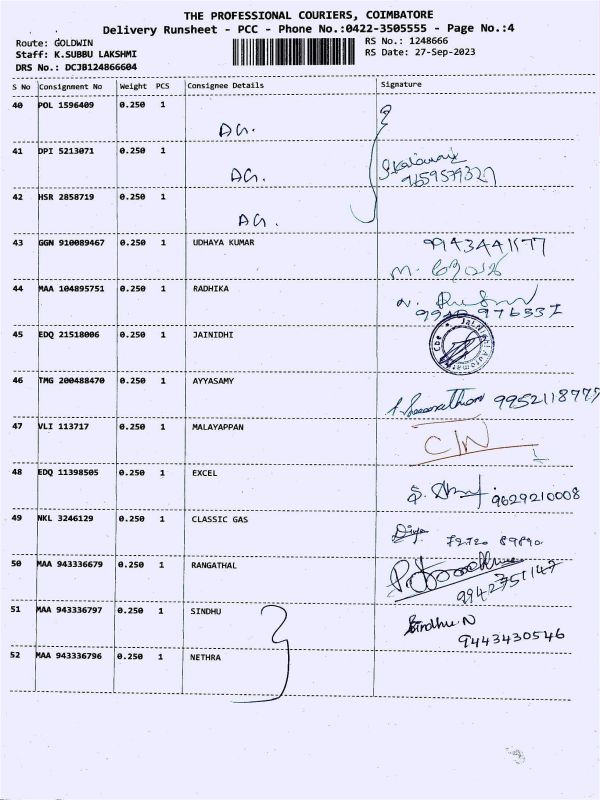 THE PROFESSIONAL COURIERS, COIMBATORE
Delivery Runsheet - PCC - Phone No.:0422-3505555 - Page No.:4
Route: GOLDWIN RS No.: 1248666
Staff: K.SUBBU LAKSHMI RS Date: 27-Sep-2023
DRS No.: DCJB124866604
S No Consignment No Weight PCS Consignee Details Signature
40 POL 1596409 0.250 1
DG.
41 DPI 5213071 0.250 1
DG. 9659579327
42 HSR 2858719 0.250 1
DG.
43 GGN 910089467 0.250 1 UDHAYA KUMAR 9943441577
44 MAA 104895751 0.250 1 RADHIKA
45 EDQ 21518006 0.250 1 JAINIDHI
46 TMG 200488470 0.250 1 AYYASAMY
9952118777
47 VLI 113717 0.250 1 MALAYAPPAN
C/N
48 EDQ 11398505 0.250 1 EXCEL
9629210008
49 NKL 3246129 0.250 1 CLASSIC GAS
Divya 72720 89890
50 MAA 943336679 0.250 1 RANGATHAL
9942751147
51 MAA 943336797 0.250 1 SINDHU
Sindhu.N
9443430546
52 MAA 943336796 0.250 1 NETHRA